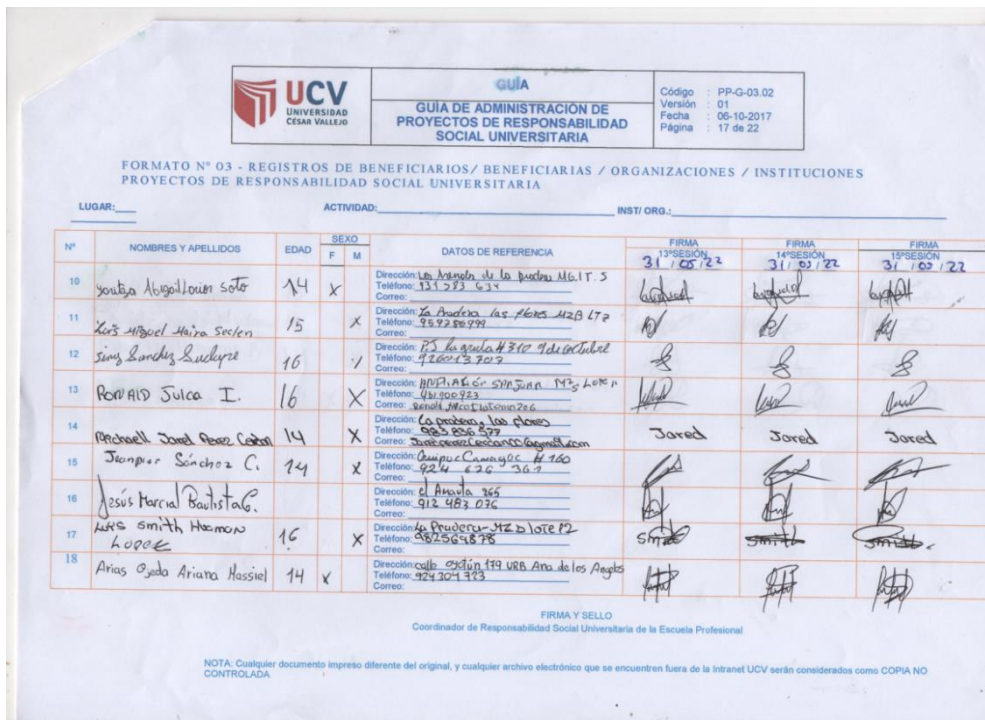 UCV
UNIVERSIDAD
CÉSAR VALLEJO
GUÍA
GUÍA DE ADMINISTRACIÓN DE
PROYECTOS DE RESPONSABILIDAD
SOCIAL UNIVERSITARIA
Código : PP-G-03.02
Versión : 01
Fecha : 06-10-2017
Página : 17 de 22
FORMATO Nº 03 - REGISTROS DE BENEFICIARIOS/ BENEFICIARIAS / ORGANIZACIONES / INSTITUCIONES
PROYECTOS DE RESPONSABILIDAD SOCIAL UNIVERSITARIA
LUGAR: ACTIVIDAD: INST/ ORG.:
Nº NOMBRES Y APELLIDOS EDAD SEXO F M DATOS DE REFERENCIA
FIRMA 13ºSESIÓN 31 / 05 / 22
FIRMA 14ºSESIÓN 31 / 05 / 22
FIRMA 15ºSESIÓN 31 / 05 / 22
10 Soto 14 X
Dirección: de la
Teléfono: 931 783 634
Correo:
11 Luis Miguel Maira Seclen 15 X
Dirección: La Pradera las flores MZB LT7
Teléfono: 959786999
Correo:
12 Sanchez 16
Dirección: PJ #310 9 de octubre
Teléfono: 926013707
Correo:
13 RONALD Julca I. 16 X
Dirección: SAN JUAN
Teléfono: 961900923
Correo:
14 Jared Perez 14 X
Dirección: La pradera, las flores
Teléfono: 983 836 577
Correo:
Jared Jared Jared
15 Jeanpier Sánchez C. 14 X
Dirección: Quipuc Camayoc # 160
Teléfono: 924 626 361
Correo:
16 Jesús Marcial Bautista G.
Dirección: el Amauta 265
Teléfono: 912 483 076
Correo:
17 Luis Smith
Lopez 16 X
Dirección: La Pradera - MZ D lote 12
Teléfono: 982564878
Correo:
Smith Smith Smith
18 Arias Ojeda Ariana Hassiel 14 X
Dirección: calle 179 URB Ana de los Angeles
Teléfono: 924304723
Correo:
FIRMA Y SELLO
Coordinador de Responsabilidad Social Universitaria de la Escuela Profesional
NOTA: Cualquier documento impreso diferente del original, y cualquier archivo electrónico que se encuentren fuera de la Intranet UCV serán considerados como COPIA NO
CONTROLADA